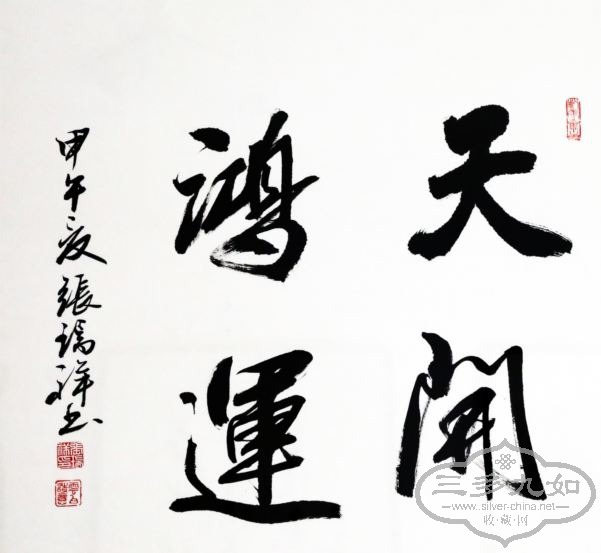 天開
鴻運
甲午夏張瑞祥书
三多九如
www.silver-china.net
收·藏·网